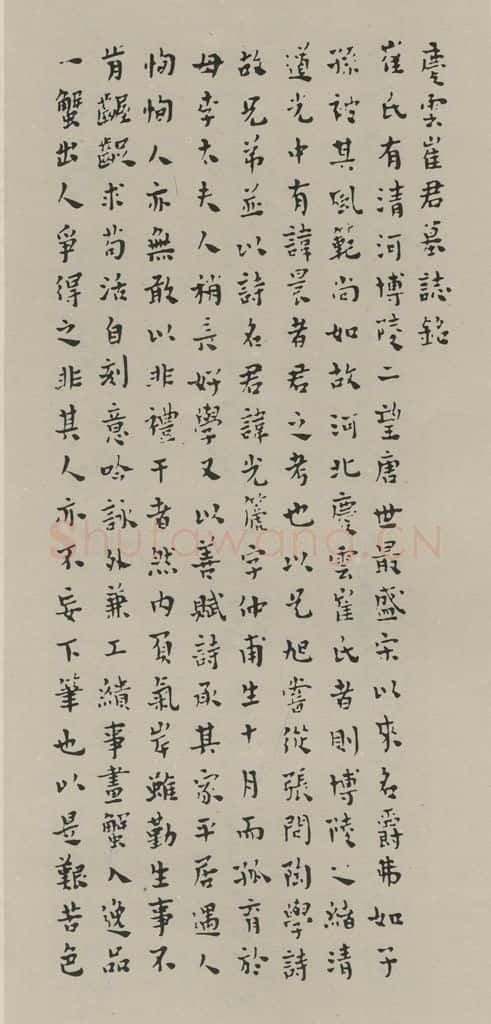 慶雲崔君墓誌銘
崔氏有清河博陵二望唐世最盛宋以來名爵弗如子
孫被其風範尚如故河北慶雲崔氏者則博陵之緒清
道光中有諱晨者君之考也以兄旭嘗從張問陶學詩
故兄弟並以詩名君諱光籚字仲甫生十月而孤育於
母李太夫人稍長好學又以善賦詩承其家平居遇人
恂恂人亦無敢以非禮干者然內負氣岸雖勤生事不
肯齷齪求苟活自刻意吟詠外兼工繢事畫蟹入逸品
一蟹出人爭得之非其人亦不妄下筆也以是艱苦色
Shufawang.CN